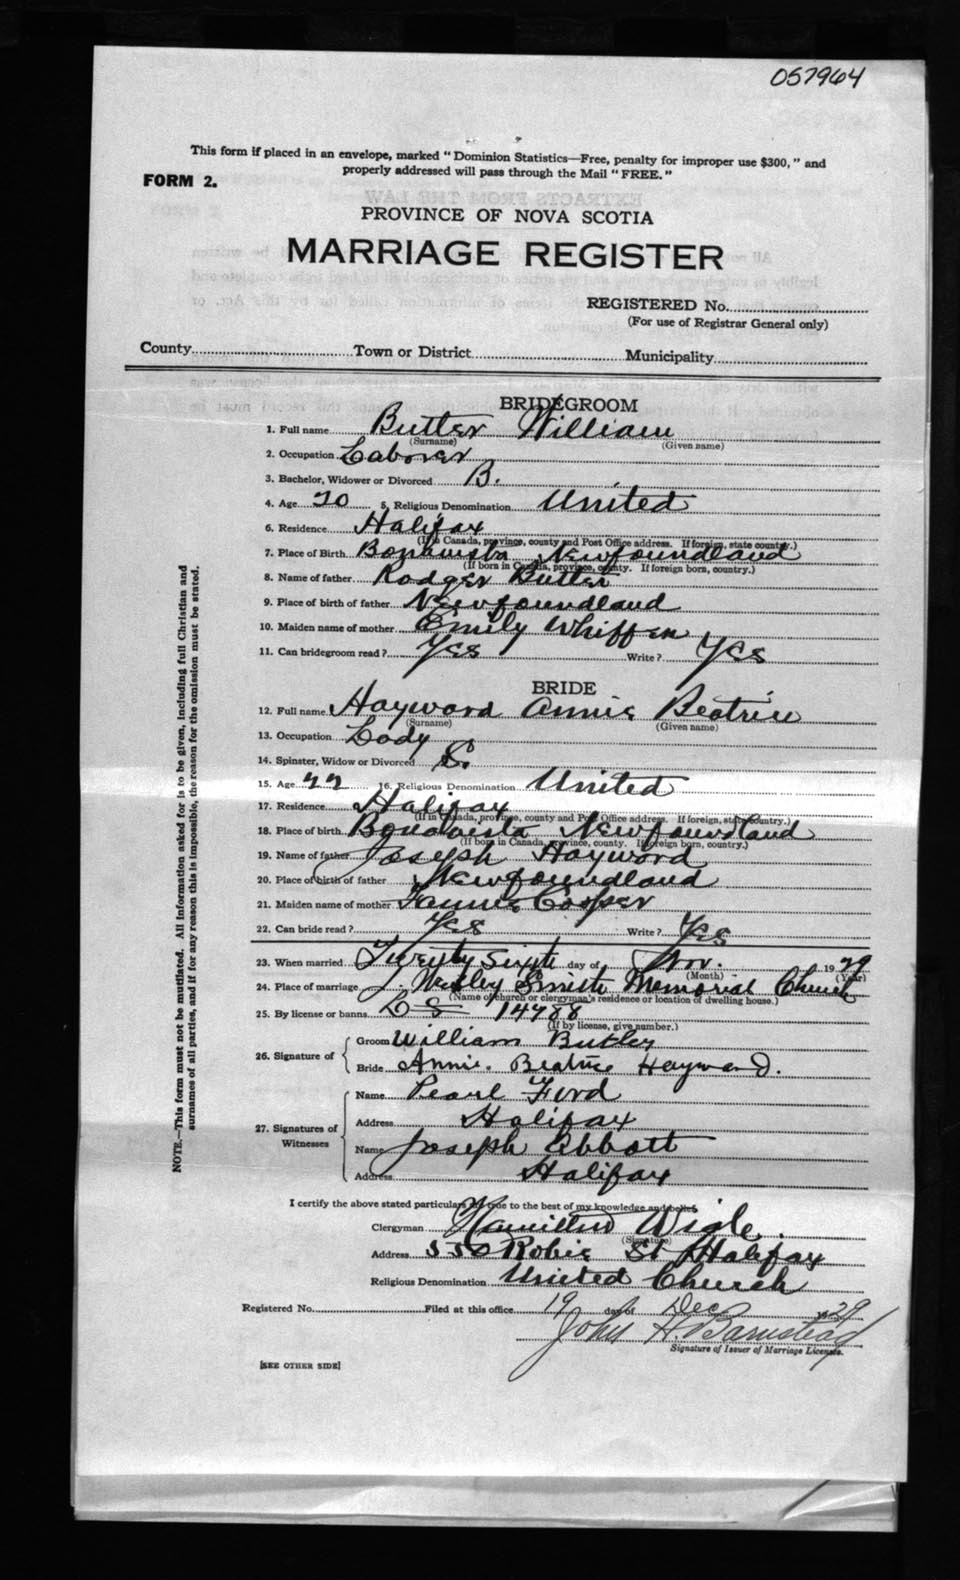 057964
This form if placed in an envelope, marked "Dominion Statistics—Free, penalty for improper use $300," and
properly addressed will pass through the Mail "FREE."
FORM 2.
PROVINCE OF NOVA SCOTIA
MARRIAGE REGISTER
REGISTERED No.
(For use of Registrar General only)
County Town or District Municipality
NOTE.—This form must not be mutilated. All information asked for is to be given, including full Christian and
surnames of all parties, and if for any reason this is impossible, the reason for the omission must be stated.
BRIDEGROOM
1. Full name Butler William
(Surname) (Given name)
2. Occupation Laborer
3. Bachelor, Widower or Divorced B.
4. Age 20 5. Religious Denomination United
6. Residence Halifax
(If in Canada, province, county and Post Office address. If foreign, state country.)
7. Place of Birth Bonavista Newfoundland
(If born in Canada, province, county. If foreign born, country.)
8. Name of father Rodger Butler
9. Place of birth of father Newfoundland
10. Maiden name of mother Emily Whiffen
11. Can bridegroom read? Yes Write? Yes
BRIDE
12. Full name Hayward Annie Beatrice
(Surname) (Given name)
13. Occupation Lady
14. Spinster, Widow or Divorced S.
15. Age 22 16. Religious Denomination United
17. Residence Halifax
(If in Canada, province, county and Post Office address. If foreign, state country.)
18. Place of birth Bonavista Newfoundland
(If born in Canada, province, county. If foreign born, country.)
19. Name of father Joseph Hayward
20. Place of birth of father Newfoundland
21. Maiden name of mother Fannie Cooper
22. Can bride read? Yes Write? Yes
23. When married Twenty Sixth day of Nov. 1929
(Month) (Year)
24. Place of marriage J. Wesley Smith Memorial Church
(Name of church or clergyman's residence or location of dwelling house.)
25. By license or banns 14788
(If by license, give number.)
26. Signature of
Groom William Butler
Bride Annie Beatrice Hayward.
27. Signatures of Witnesses
Name Pearl Ford
Address Halifax
Name Joseph Abbott
Address Halifax
I certify the above stated particulars are true to the best of my knowledge and belief.
Clergyman Hamilton Wigle.
(Signature)
Address 550 Robie St Halifax
Religious Denomination United Church
Registered No. Filed at this office 19 day of Dec 1929
John H. Barnstead
Signature of Issuer of Marriage Licenses.
[SEE OTHER SIDE]